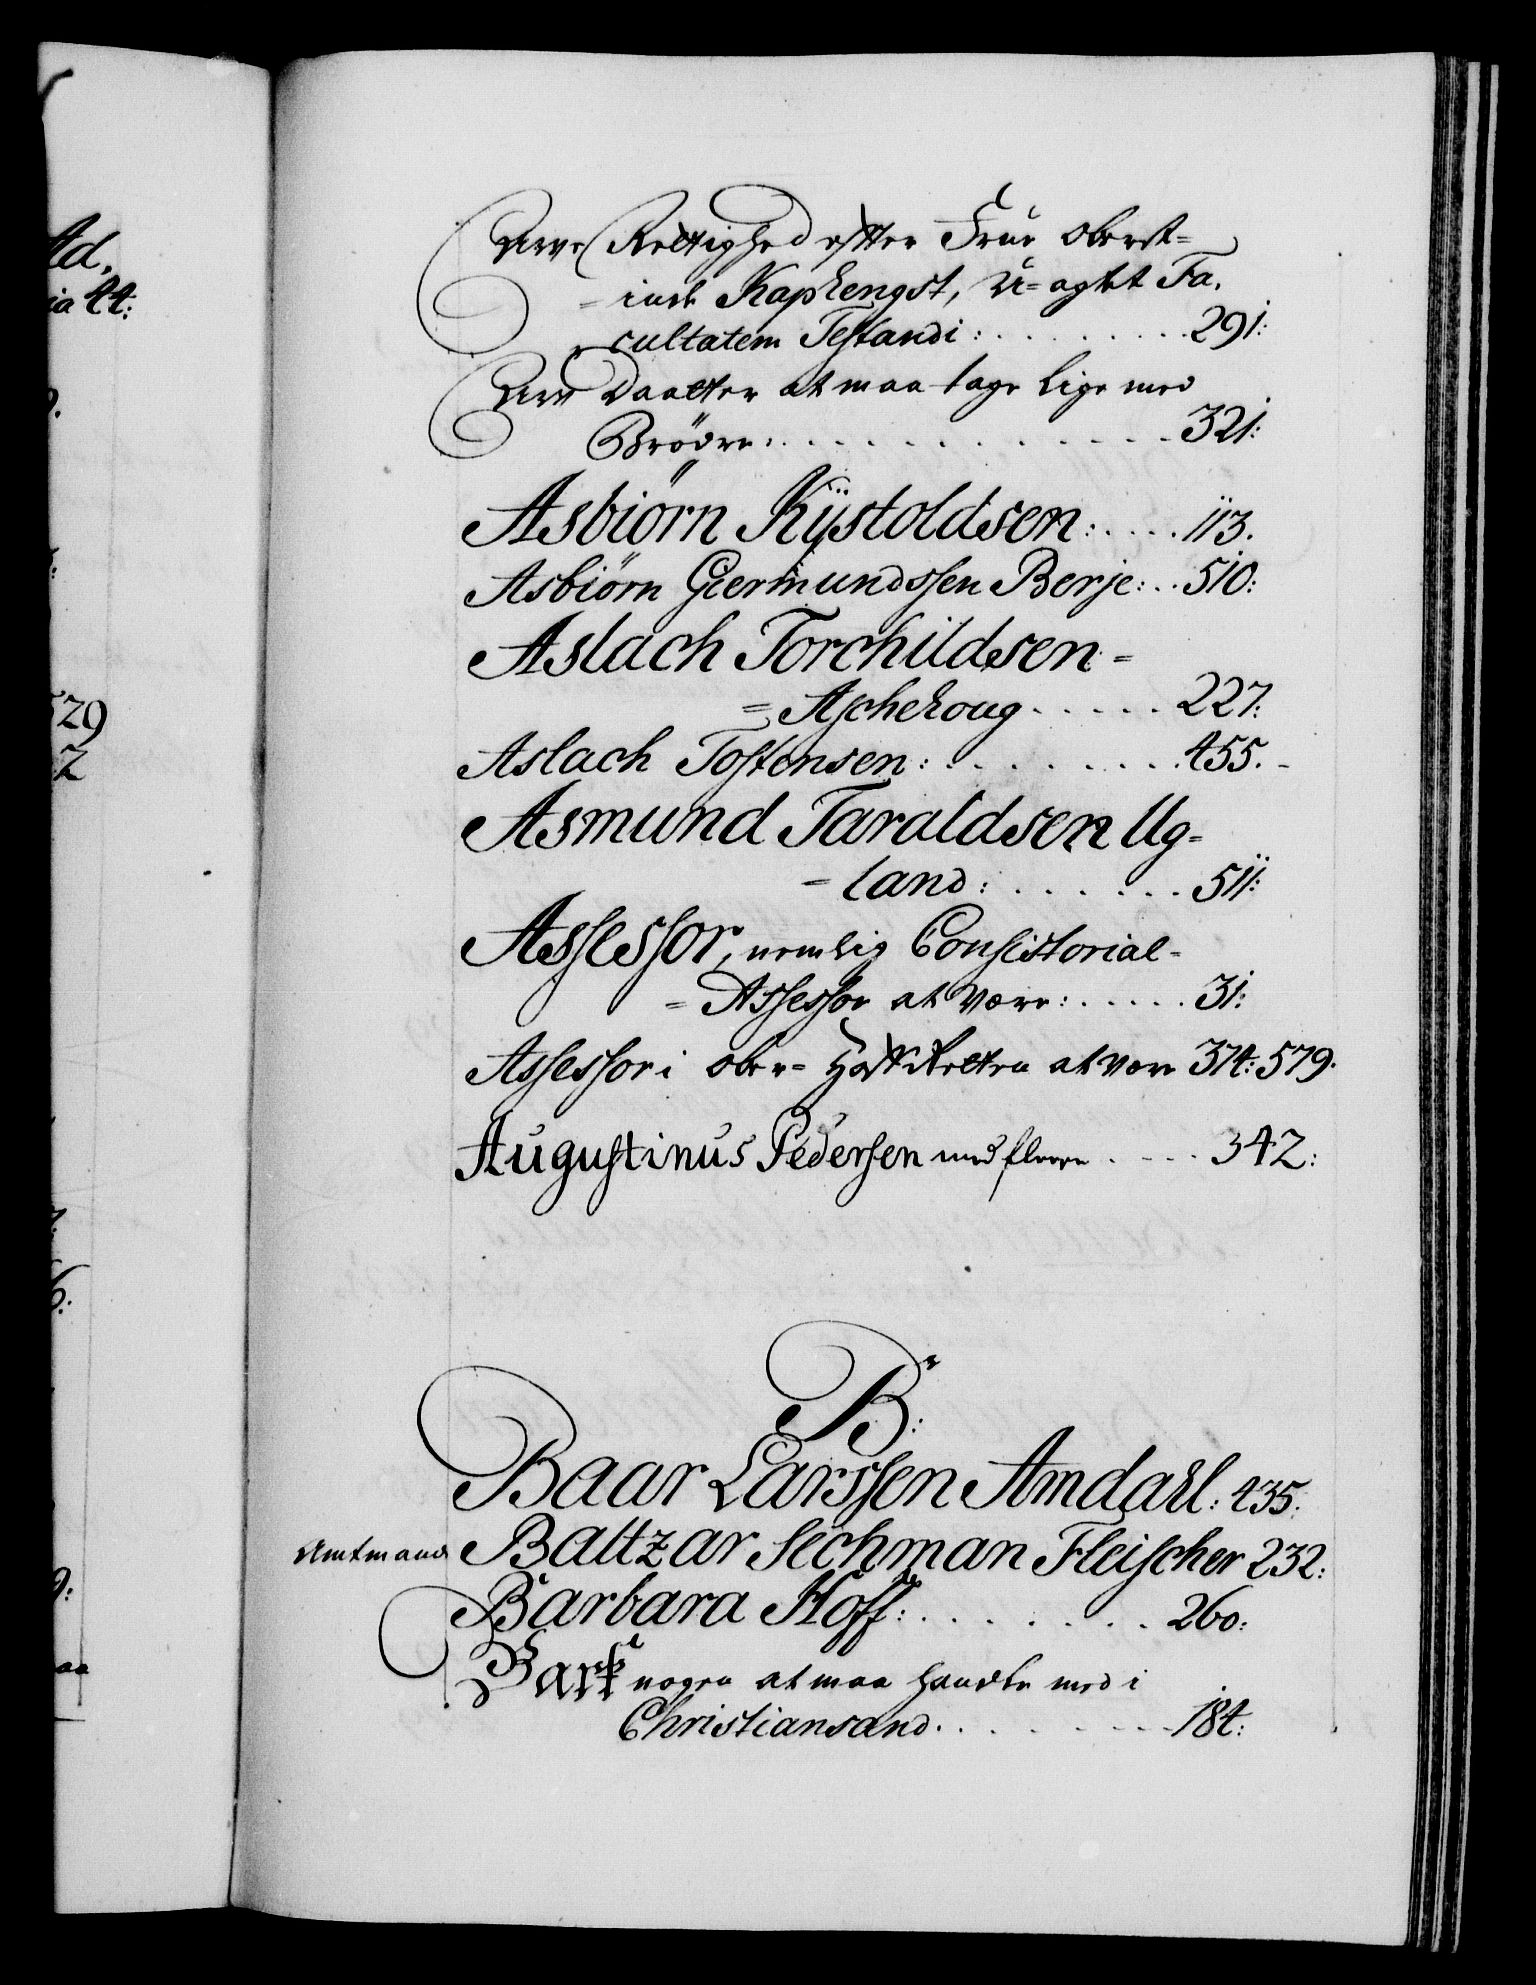 Arve Rettighed efter Frue Oberst=
= inde Kaphengst, U=agtet Fa,
cultatem Testandi: . . . . . . . . 291:
Arv Daatter at maa tage lige med
Brödre: . . . . . . . . . . . . 321:
Asbiörn Kÿstoldsen: . . . . 113.
Asbiörn Giermundssen Berje: . . 510:
Aslach Torchildsen =
= Aschehoug . . . . . 227:
Aslach Tostensen: . . . . . . . . 455. -
Asmund Taraldsen Ug=
= land: . . . . . . . 511:
Assessor, nemlig Consistorial =
= Assessor at være: . . . . . 31:
Assessor i Ober= HofRetten at være 374: 579.
Augustinus Pedersen med fleere . . . . 342:
B:
Baar Larssen Amdahl: 435:
Amtmand Baltzar Sechman Fleischer 232:
Barbara Hoff: . . . . . . . . 260:
Bark nogen at maa handle med i
Christiansand. . . . . . . . . 184:
Ad,
ia 44:
529
2
6:
9:
aa